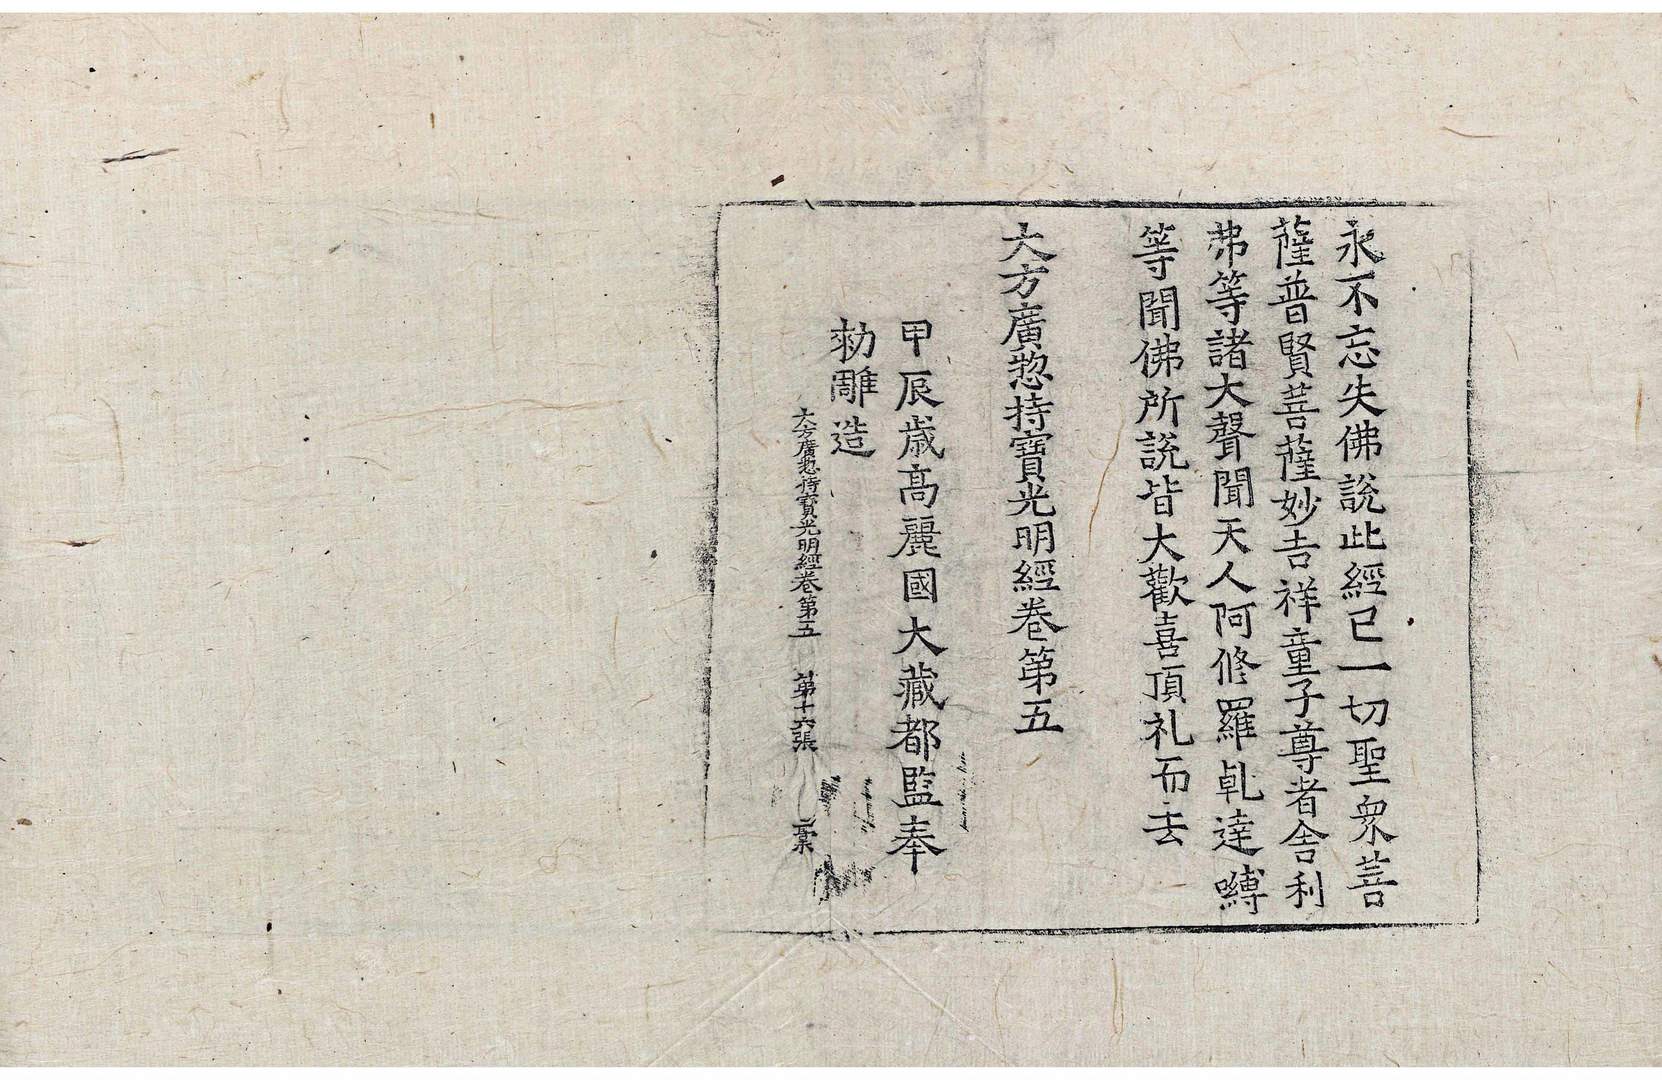 永不忘失佛說此經已一切聖衆菩
薩普賢菩薩妙吉祥童子尊者舍利
弗等諸大聲聞天人阿修羅乹達嚩
等聞佛所說皆大歡喜頂礼而去
大方廣惣持寶光明經卷第五
甲辰歳高麗國大藏都監奉
勑雕造
大方廣惣持寶光明經卷第五 第十六張